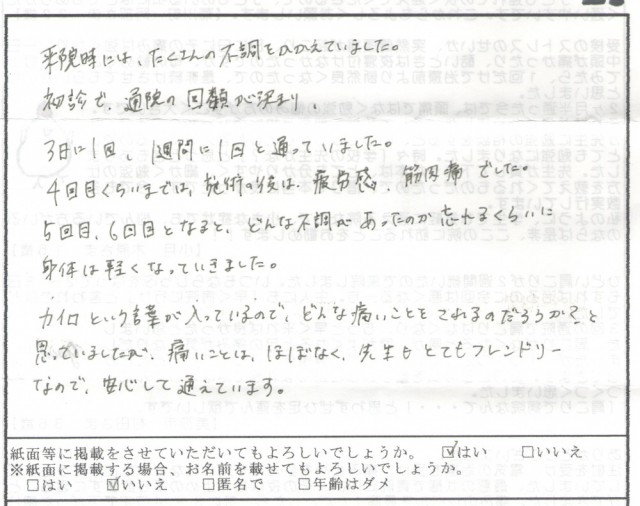 来院時には、たくさんの不調をかかえていました。
初診で、通院の回数が決まり、
3日に1回、1週間に1回と通っていました。
4回目くらいまでは、施術の後は、疲労感、筋肉痛でした。
5回目、6回目となると、どんな不調があったのか忘れるくらいに
身体は軽くなっていきました。
カイロという言葉が入っているので、どんな痛いことをされるのだろうか?と
思っていましたが、痛いことは、ほぼなく、先生もとてもフレンドリー
なので、安心して通えています。
紙面等に掲載をさせていただいてもよろしいでしょうか。 ☑はい □いいえ
※紙面に掲載する場合、お名前を載せてもよろしいでしょうか。
□はい ☑いいえ □匿名で □年齢はダメ